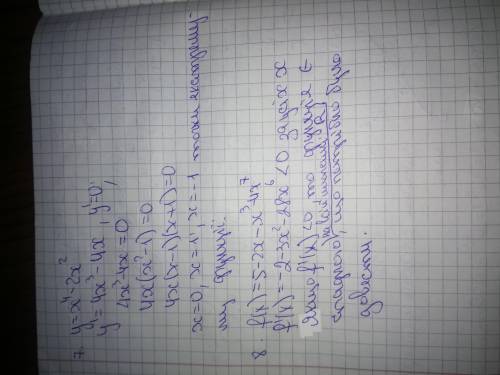 7. y=x⁴-2x²
y'=4x³-4x, y'=0;
4x³-4x=0
4x(x²-1)=0
4x(x-1)(x+1)=0
x=0, x=1, x=-1 точки екстрему-
му функції.
8. f(x)=5-2x-x³-4x⁷
f'(x)=-2-3x²-28x⁶<0 за всіх x
Якщо f'(x)<0 то функція є
спадною, що потрібно було
довести.